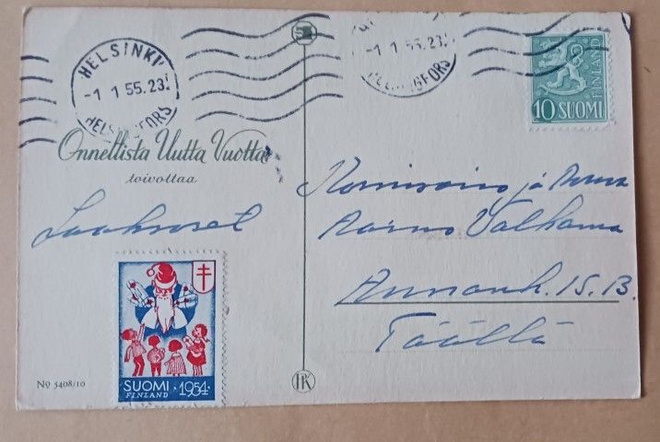 HELSINKI
-1 1 55.23
HELSINGFORS
-1 1 55.23
HELSINGFORS
FINLAND
10 SUOMI
Onnellista Uutta Vuotta
toivottaa
ja Rouva
Aarno Valkama
Annank. 15. B.
Täällä
SUOMI · 1954
FINLAND
No 5408/10
HK